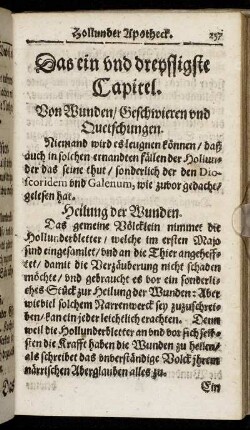 Hollunder Apotheck. 257
Das ein vnd dreyssigste
Capitel.
Von Wunden/ Geschwieren vnd
Quetschungen.
Niemand wird es leugnen können/ daß
auch in solchen ernandten fällen der Hollun-
der das seine thut/ sonderlich der den Dio-
scoridem vnd Galenum, wie zuvor gedacht/
gelesen hat.
Heilung der Wunden.
Das gemeine Völcklein nimmet die
Hollunderbletter/ welche im ersten Majo
sind eingesamlet/ vnd an die Thier angeheff-
tet/ damit die Verzäuberung nicht schaden
möchte/ vnd gebraucht es vor ein sonderli-
ches Stück zur Heilung der Wunden: Aber
wieviel solchem Narrenwerck sey zuzuschrei-
ben/ kan ein jeder leichtlich erachten. Denn
weil die Hollunderbletter an vnd vor sich sel-
sten die Krafft haben die Wunden zu heilen/
als schreibet das vnverständige Volck jhrem
närrischen Aberglauben alles zu.
Ein